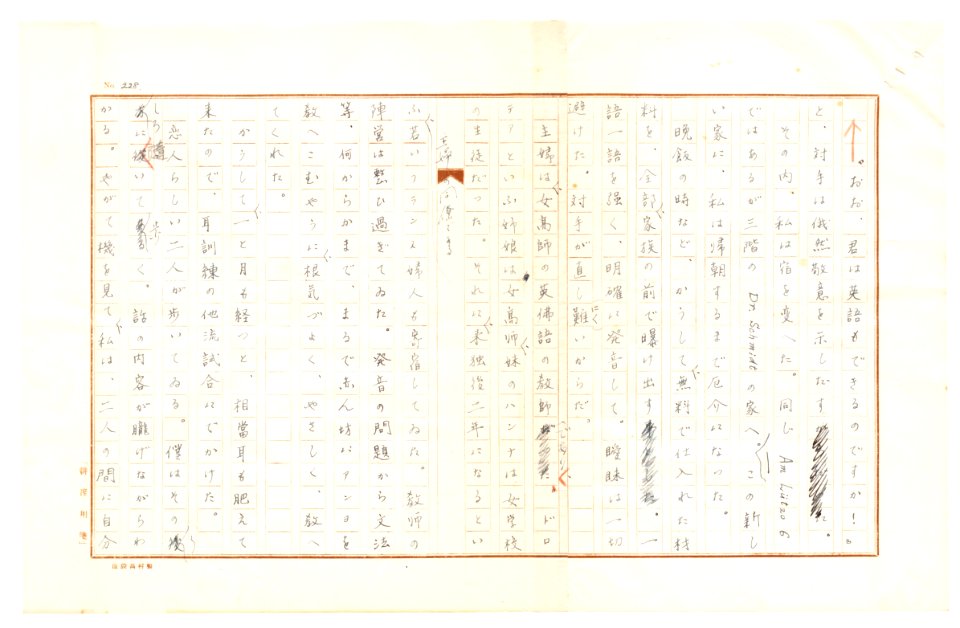 No. 228
“おお、君は英語もできるのですか！”
と、対手は俄然敬意を示しだす
た。
その内、私は宿を変へた。同じ Am Lützo の
ではあるが三階の Dr. Schmidt の家へ。この新し
い家に、私は帰朝するまで厄介になった。
晩飯の時など、かうして無料で仕入れた材
料を、全部家族の前で曝け出す
。一
語一語を強く、明確に発音して。曖昧は一切
避けた。対手が直し難いからだ。
にく
主婦は女高師の英佛語の教師
、ドロ
テアといふ姉娘は女高師、妹のハンナは女学校
の生徒だった。それに、来独後二年になるとい
ふ若いフランス婦人も寄宿してゐた。教師の
陣営は整ひ過ぎてゐた。発音の問題から文法
等、何からかまで、まるで赤ん坊にアンヨを
教へこむやうに、根気づよく、やさしく、教へ
てくれた。
かうして、一と月も経つと、相當耳も肥えて
来たので、耳訓練の他流試合にでかけた。
恋人らしい二人が歩いてゐる。僕はその後
しろ
に
いて
く。話の内容が朧げながらわ
かる。やがて機を見て、私は、二人の間に自分